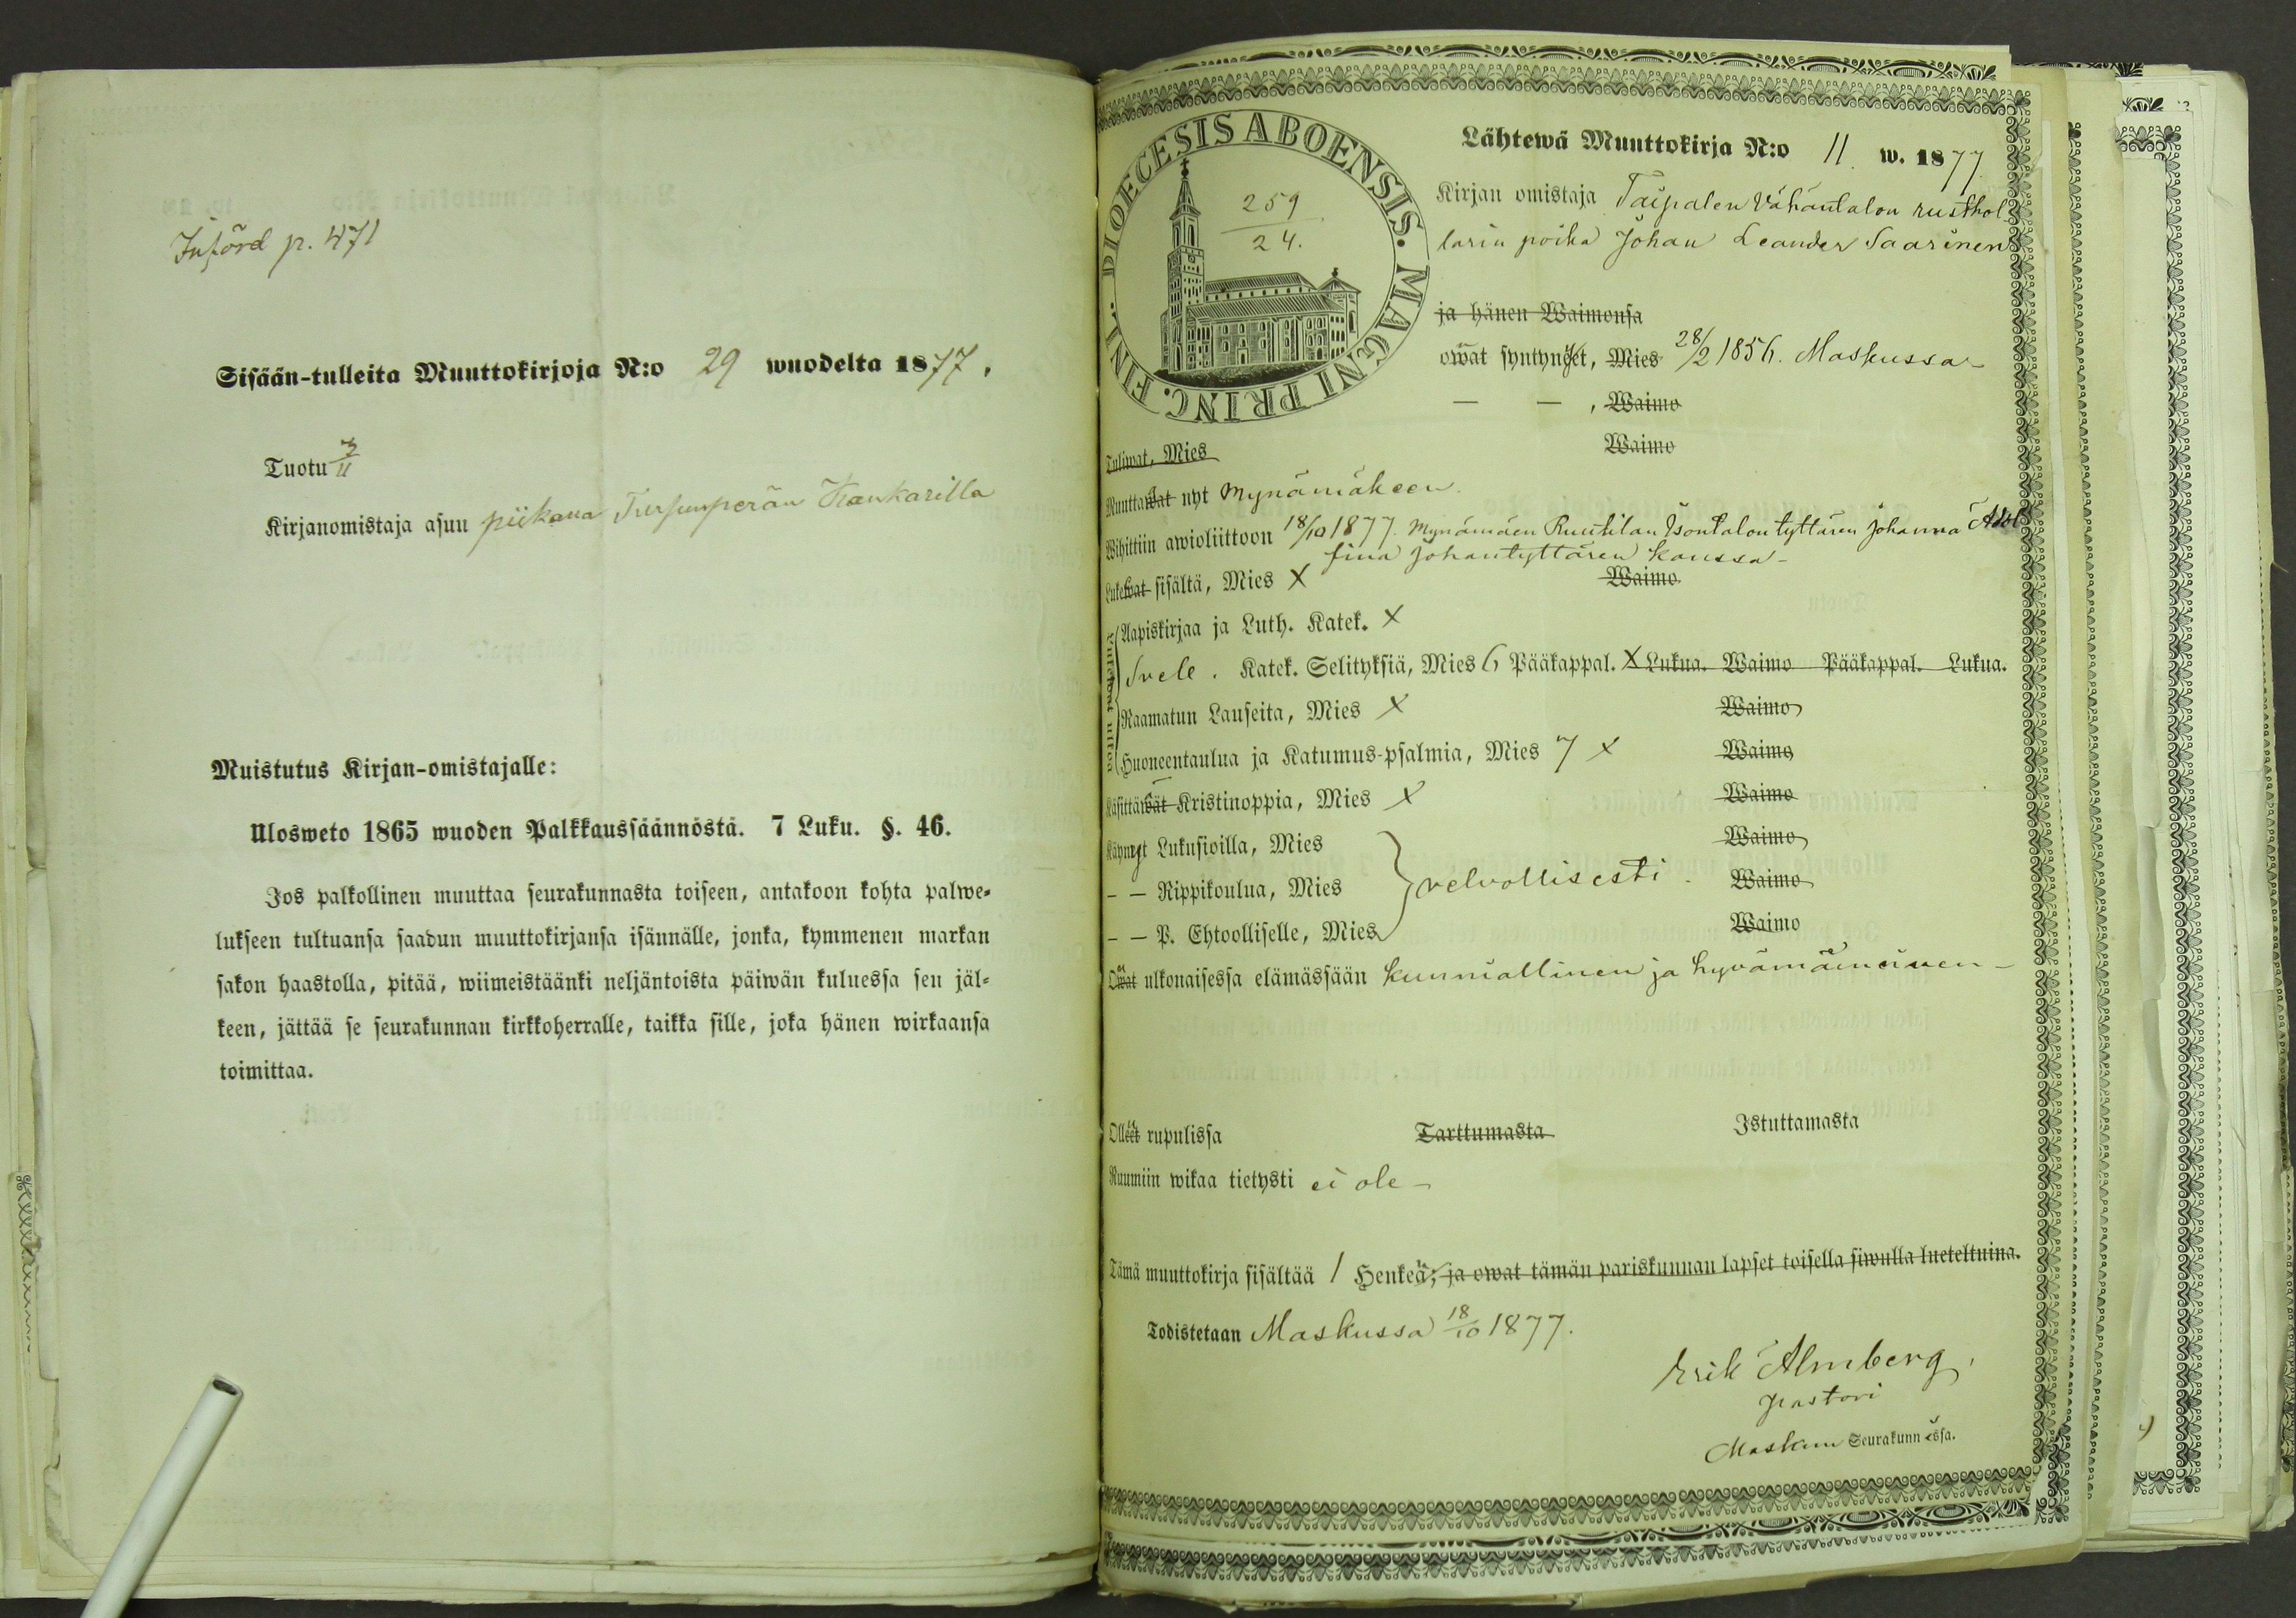 Införd p. 471
Sisään-tulleita Muuttokirjoja N:o 29 wuodelta 1877.
Tuotu 3/11
Kirjanomistaja asuu piikana Tursunperän Kankarilla
Muistutus Kirjan-omistajalle:
Ulosweto 1865 wuoden Palkkaussäännöstä. 7 Luku. §. 46.
Jos palkollinen muuttaa seurakunnasta toiseen, antakoon kohta palwe-
lukseen tultuansa saadun muuttokirjansa isännälle, jonka, kymmenen markan
sakon haastolla, pitää, wiimeistäänki neljäntoista päiwän kuluessa sen jäl-
keen, jättää se seurakunnan kirkkoherralle, taikka sille, joka hänen wirkaansa
toimittaa.
DIOECESIS ABOENSIS. MAGNI PRINC. FINL.
259
24.
Lähtewä Muuttokirja N:o 11 w. 1877
Kirjan omistaja Taipalen Vähäntalon rusthol-
larin poika Johan Leander Saarinen
ja hänen Waimonsa
owat syntynyet, Mies 28/2 1856. Maskussa
— — , Waimo
Tuliwat, Mies Waimo
Muuttawat nyt Mynämäkeen.
Wihittiin awioliittoon 18/10 1877. Mynämäen Ruutilan Isontalon tyttären Johanna Adol
fina Johantyttären kanssa
Lukewat sisältä, Mies X Waimo
Lukewat ulkoa
Aapiskirjaa ja Luth. Katek. X
Svele. Katek. Selityksiä, Mies 6 Pääkappal. X Lukua. Waimo Pääkappal. Lukua.
Raamatun Lauseita, Mies X Waimo
Huoneentaulua ja Katumus-psalmia, Mies 7 X Waimo
Käsittäwät Kristinoppia, Mies X Waimo
Käynyt Lukusioilla, Mies Waimo
— — Rippikoulua, Mies velvollisesti. Waimo
— — P. Ehtoolliselle, Mies Waimo
Owat ulkonaisessa elämässään kunniallinen ja hyvämaineinen
Olleet rupulissa Tarttumasta Istuttamasta
Ruumiin wikaa tietysti ei ole
Tämä muuttokirja sisältää 1 Henkeä; ja owat tämän pariskunnan lapset toisella siwulla lueteltuina.
Todistetaan Maskussa 18/10 1877.
Erik Almberg,
pastori
Maskun Seurakunnassa.